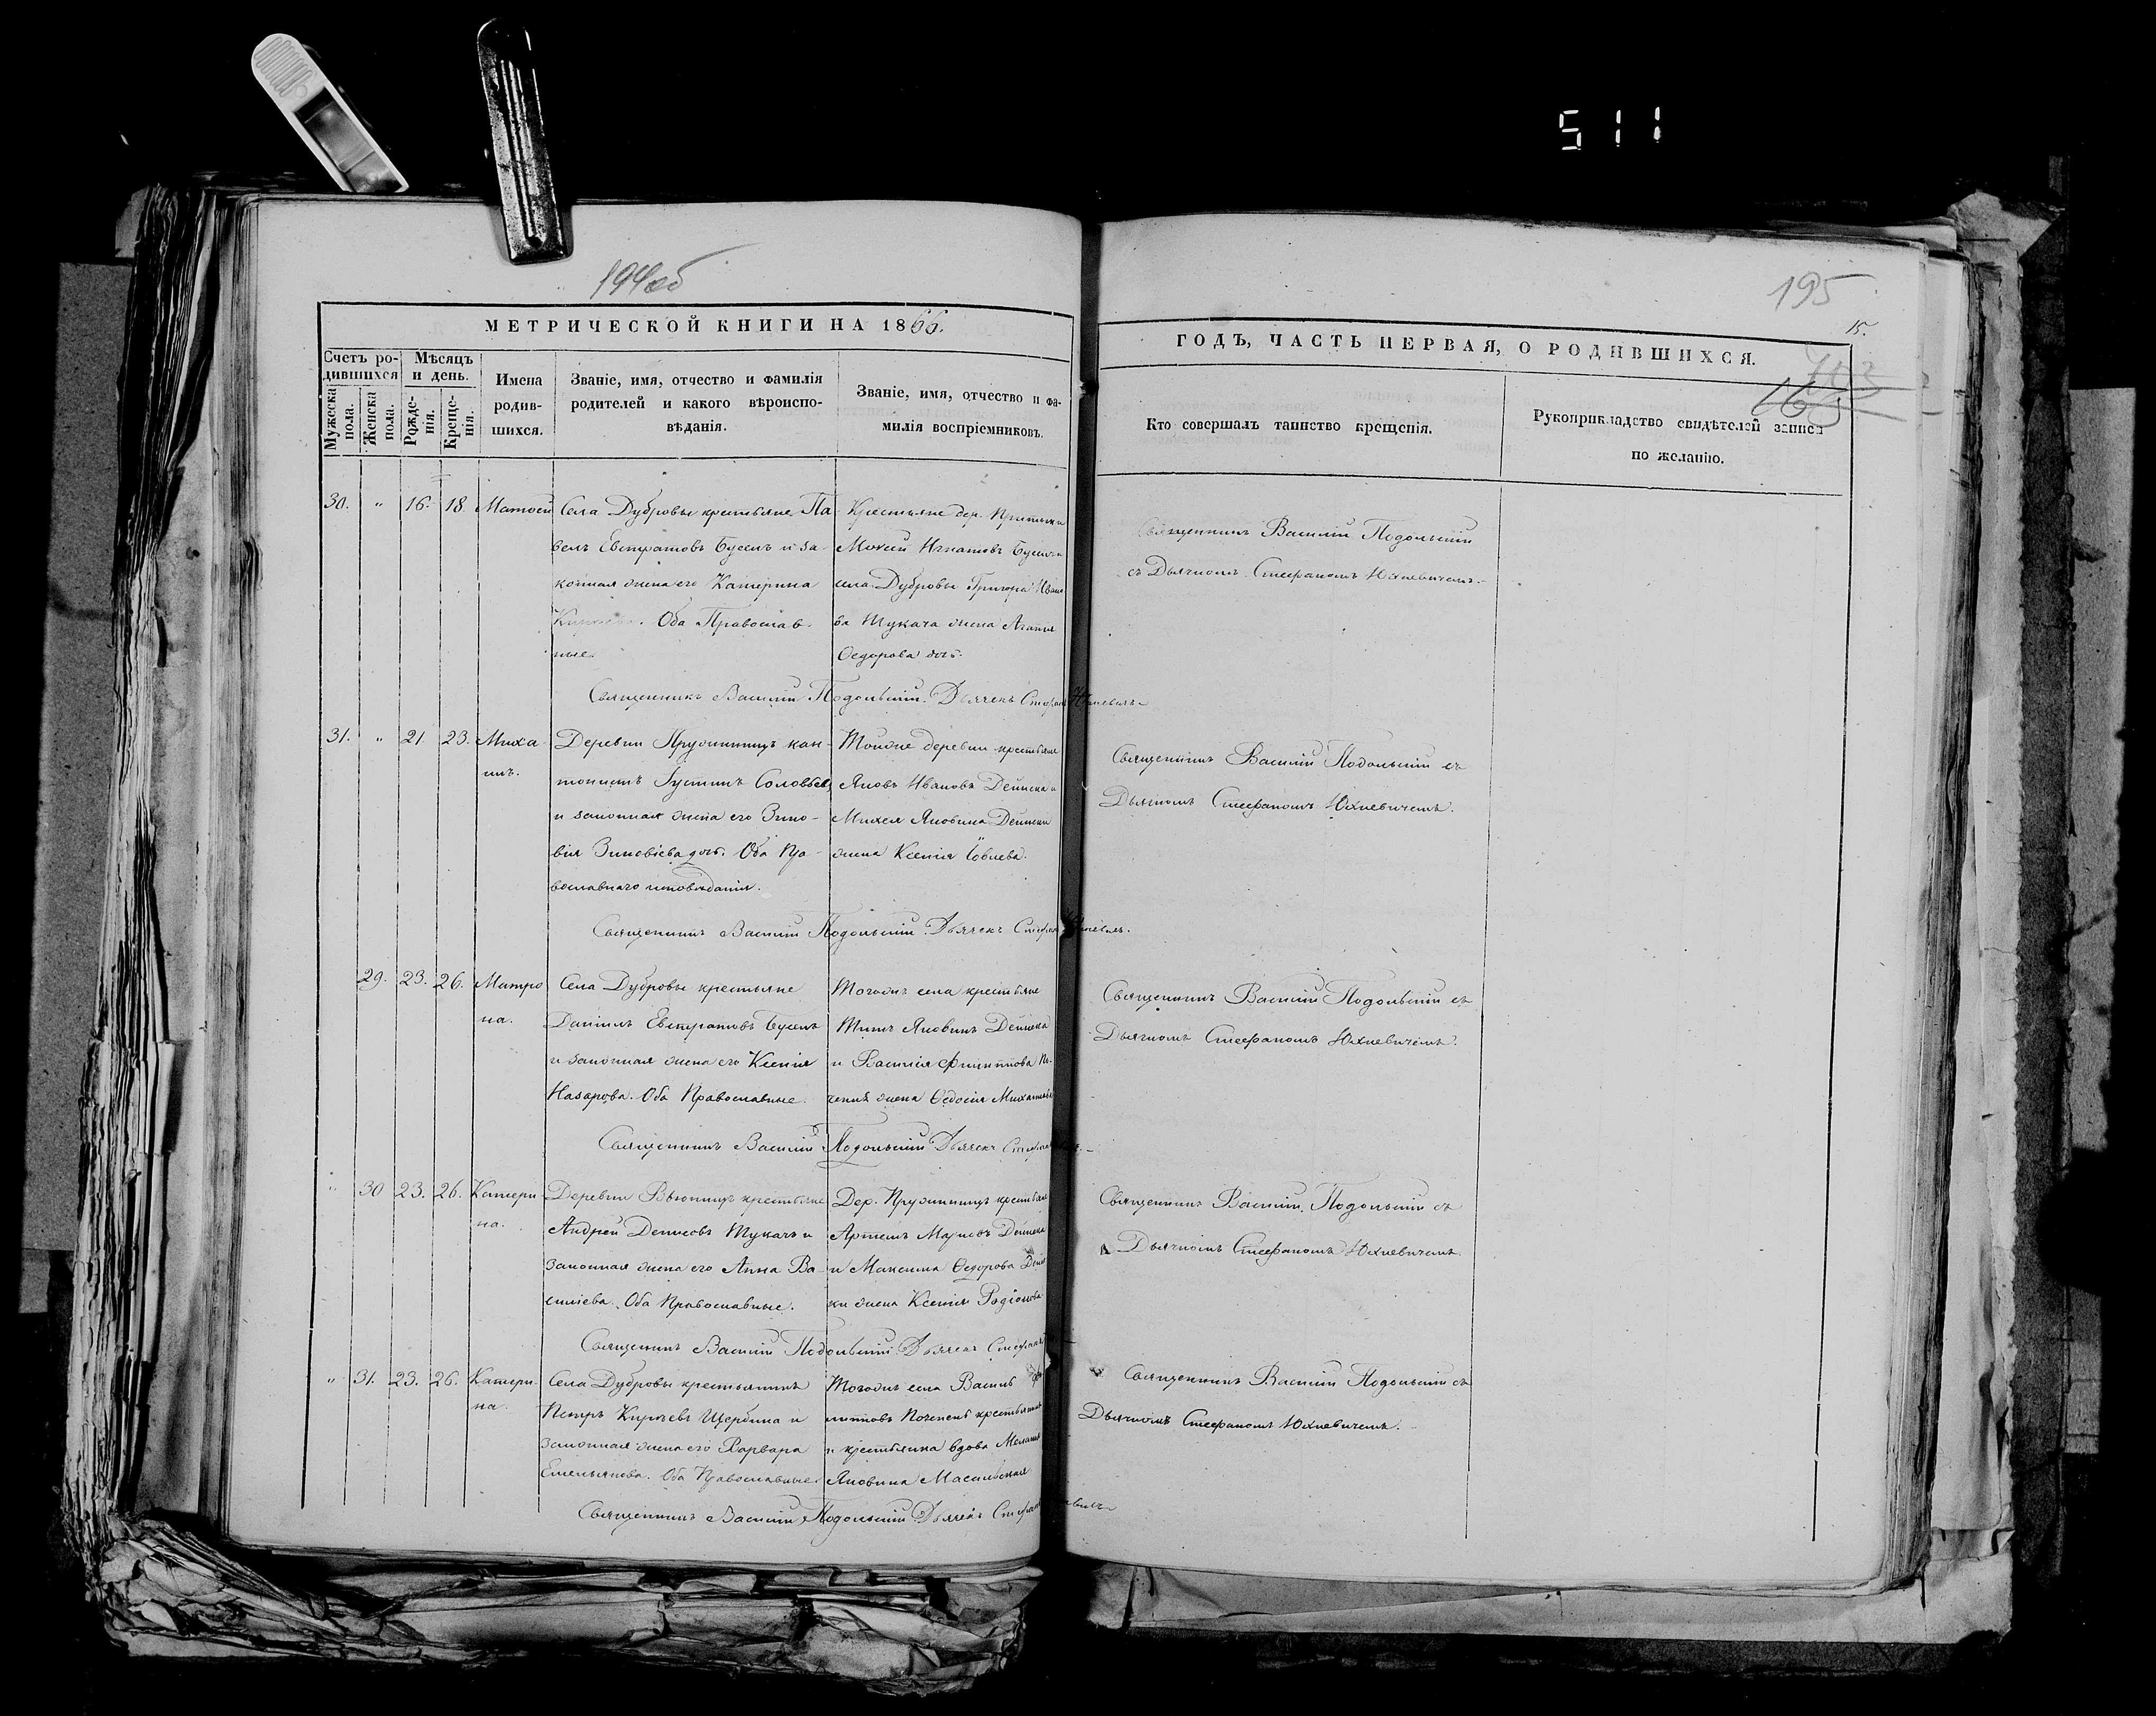 511
194об
195
15.
МЕТРИЧЕСКОЙ КНИГИ НА 1866.
ГОДЪ, ЧАСТЬ ПЕРВАЯ, О РОДИВШИХСЯ.
Счетъ ро-
дившихся
Мѣсяцъ
и день.
Мужеска
пола.
Женска
пола.
Рожде-
нія.
Креще-
нія.
Имена
родив-
шихся.
Званіе, имя, отчество и фамилія
родителей и какого вѣроиспо-
вѣданія.
Званіе, имя, отчество и фа-
милія воспріемниковъ.
Кто совершалъ таинство крещенія.
Рукоприкладство свидѣтелей записи
по желанію.
30. " 16. 18. Матѳей
Села Дубровы крестьяне Па-
велъ Евстратовъ Буселъ и за-
конная жена его Катерина
Оба Православ-
ные.
Крестьяне дер.
Мокей Игнатовъ
села Дубровы Григора Ивано
ва Тукача жена Агапія
Ѳедорова дочь.
Священникъ Василій Подольскій
съ Дьячкомъ Стефаномъ Юхневичемъ.
Священникъ Василій Подольскій. Дьячекъ Стефанъ Юхневичъ
31. " 21. 23. Миха-
илъ.
Деревни Пружинищъ кан-
тонистъ Іустинъ Соловьевъ
и законная жена его Зино-
вія Зиновіева дочь. Оба Пра-
вославнаго исповѣданія.
Тойже деревни крестьяне
Яковъ Ивановъ Дейнека и
Михея Яковина Дейнеки
жена Ксенія Іовлева.
Священникъ Василій Подольскій съ
Дьячкомъ Стефаномъ Юхневичемъ.
Священникъ Василій Подольскій. Дьячекъ Стефанъ Юхневичъ.
29. 23. 26. Матро
на.
Села Дубровы крестьяне
Даніилъ Евстратовъ Буселъ
и законная жена его Ксенія
Назарова. Оба Православные.
Тогожъ села крестьяне
Титъ Яковинъ Дейнека
и Василія Филиппова По-
жена Ѳедосія
Священникъ Василій Подольскій съ
Дьячкомъ Стефаномъ Юхневичемъ.
Священникъ Василій Подольскій Дьячекъ Стефанъ
" 30 23. 26. Катери
на.
Деревни Вьюнищъ крестьяне
Андрей Денисовъ Тукачъ и
законная жена его Анна Ва-
силіева. Оба Православные.
Дер. Пружинищъ крестьяне
Артемъ Марковъ Дейнека
и Максима Ѳедорова Дейне
ки жена Ксенія Родіонова
Священникъ Василій Подольскій съ
Дьячкомъ Стефаномъ Юхневичемъ.
Священникъ Василій Подольскій. Дьячекъ Стефанъ
" 31. 23. 26. Катери-
на.
Села Дубровы крестьянинъ
Петръ Щербина и
законная жена его Варвара
Емельянова. Оба Православные.
Тогожъ села Василь
липповъ крестьянинъ
и крестьянка вдова
Яковина
Священникъ Василій Подольскій съ
Дьячкомъ Стефаномъ Юхневичемъ.
Священникъ Василій Подольскій Дьячекъ Стефанъ